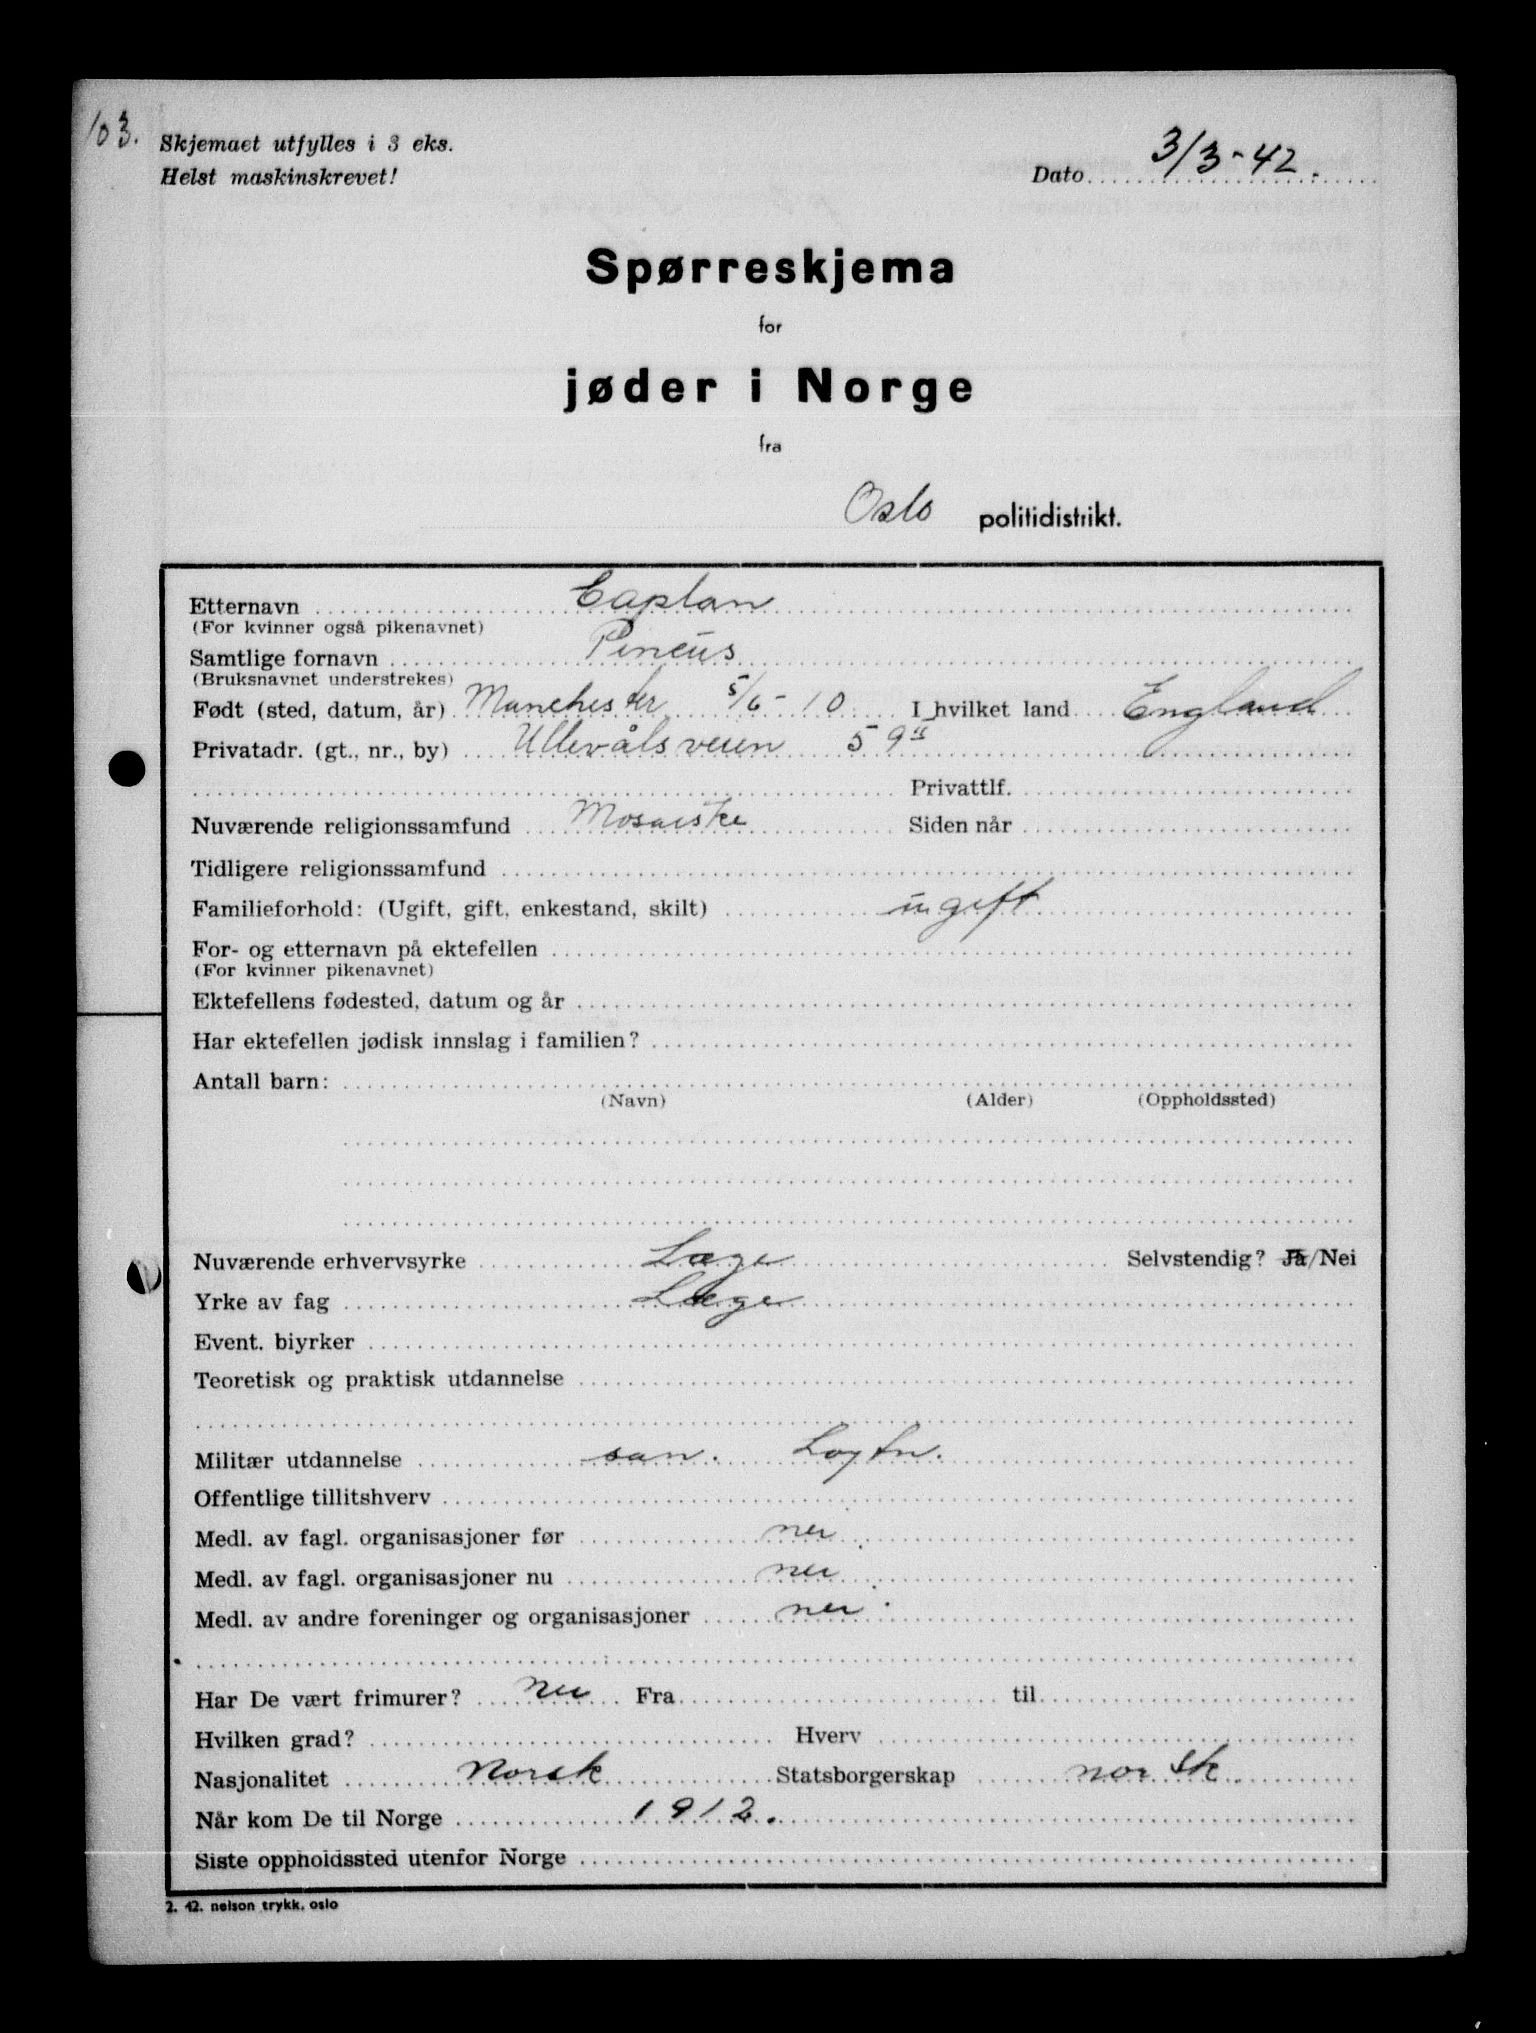 103.
Skjemaet utfylles i 3 eks.
Helst maskinskrevet!
Dato 3/3-42.
Spørreskjema
for
jøder i Norge
fra
Oslo politidistrikt.
Etternavn Caplan
(For kvinner også pikenavnet)
Samtlige fornavn Pincus
(Bruksnavnet understrekes)
Født (sted, datum, år) Manchester 5/6-10 I hvilket land England
Privatadr. (gt., nr., by) Ullevålsveien 59
Privattlf.
Nuværende religionssamfund Mosaiske Siden når
Tidligere religionssamfund
Familieforhold: (Ugift, gift, enkestand, skilt) ugift
For- og etternavn på ektefellen
(For kvinner pikenavnet)
Ektefellens fødested, datum og år
Har ektefellen jødisk innslag i familien?
Antall barn:
(Navn) (Alder) (Oppholdssted)
Nuværende erhvervsyrke Læge Selvstendig? Ja/Nei
Yrke av fag Læge
Event. biyrker
Teoretisk og praktisk utdannelse
Militær utdannelse san. Løytn.
Offentlige tillitshverv
Medl. av fagl. organisasjoner før nei
Medl. av fagl. organisasjoner nu nei
Medl. av andre foreninger og organisasjoner nei
Har De vært frimurer? nei Fra til
Hvilken grad? Hverv
Nasjonalitet Norsk Statsborgerskap norsk
Når kom De til Norge 1912.
Siste oppholdssted utenfor Norge
2. 42. nelson trykk, oslo